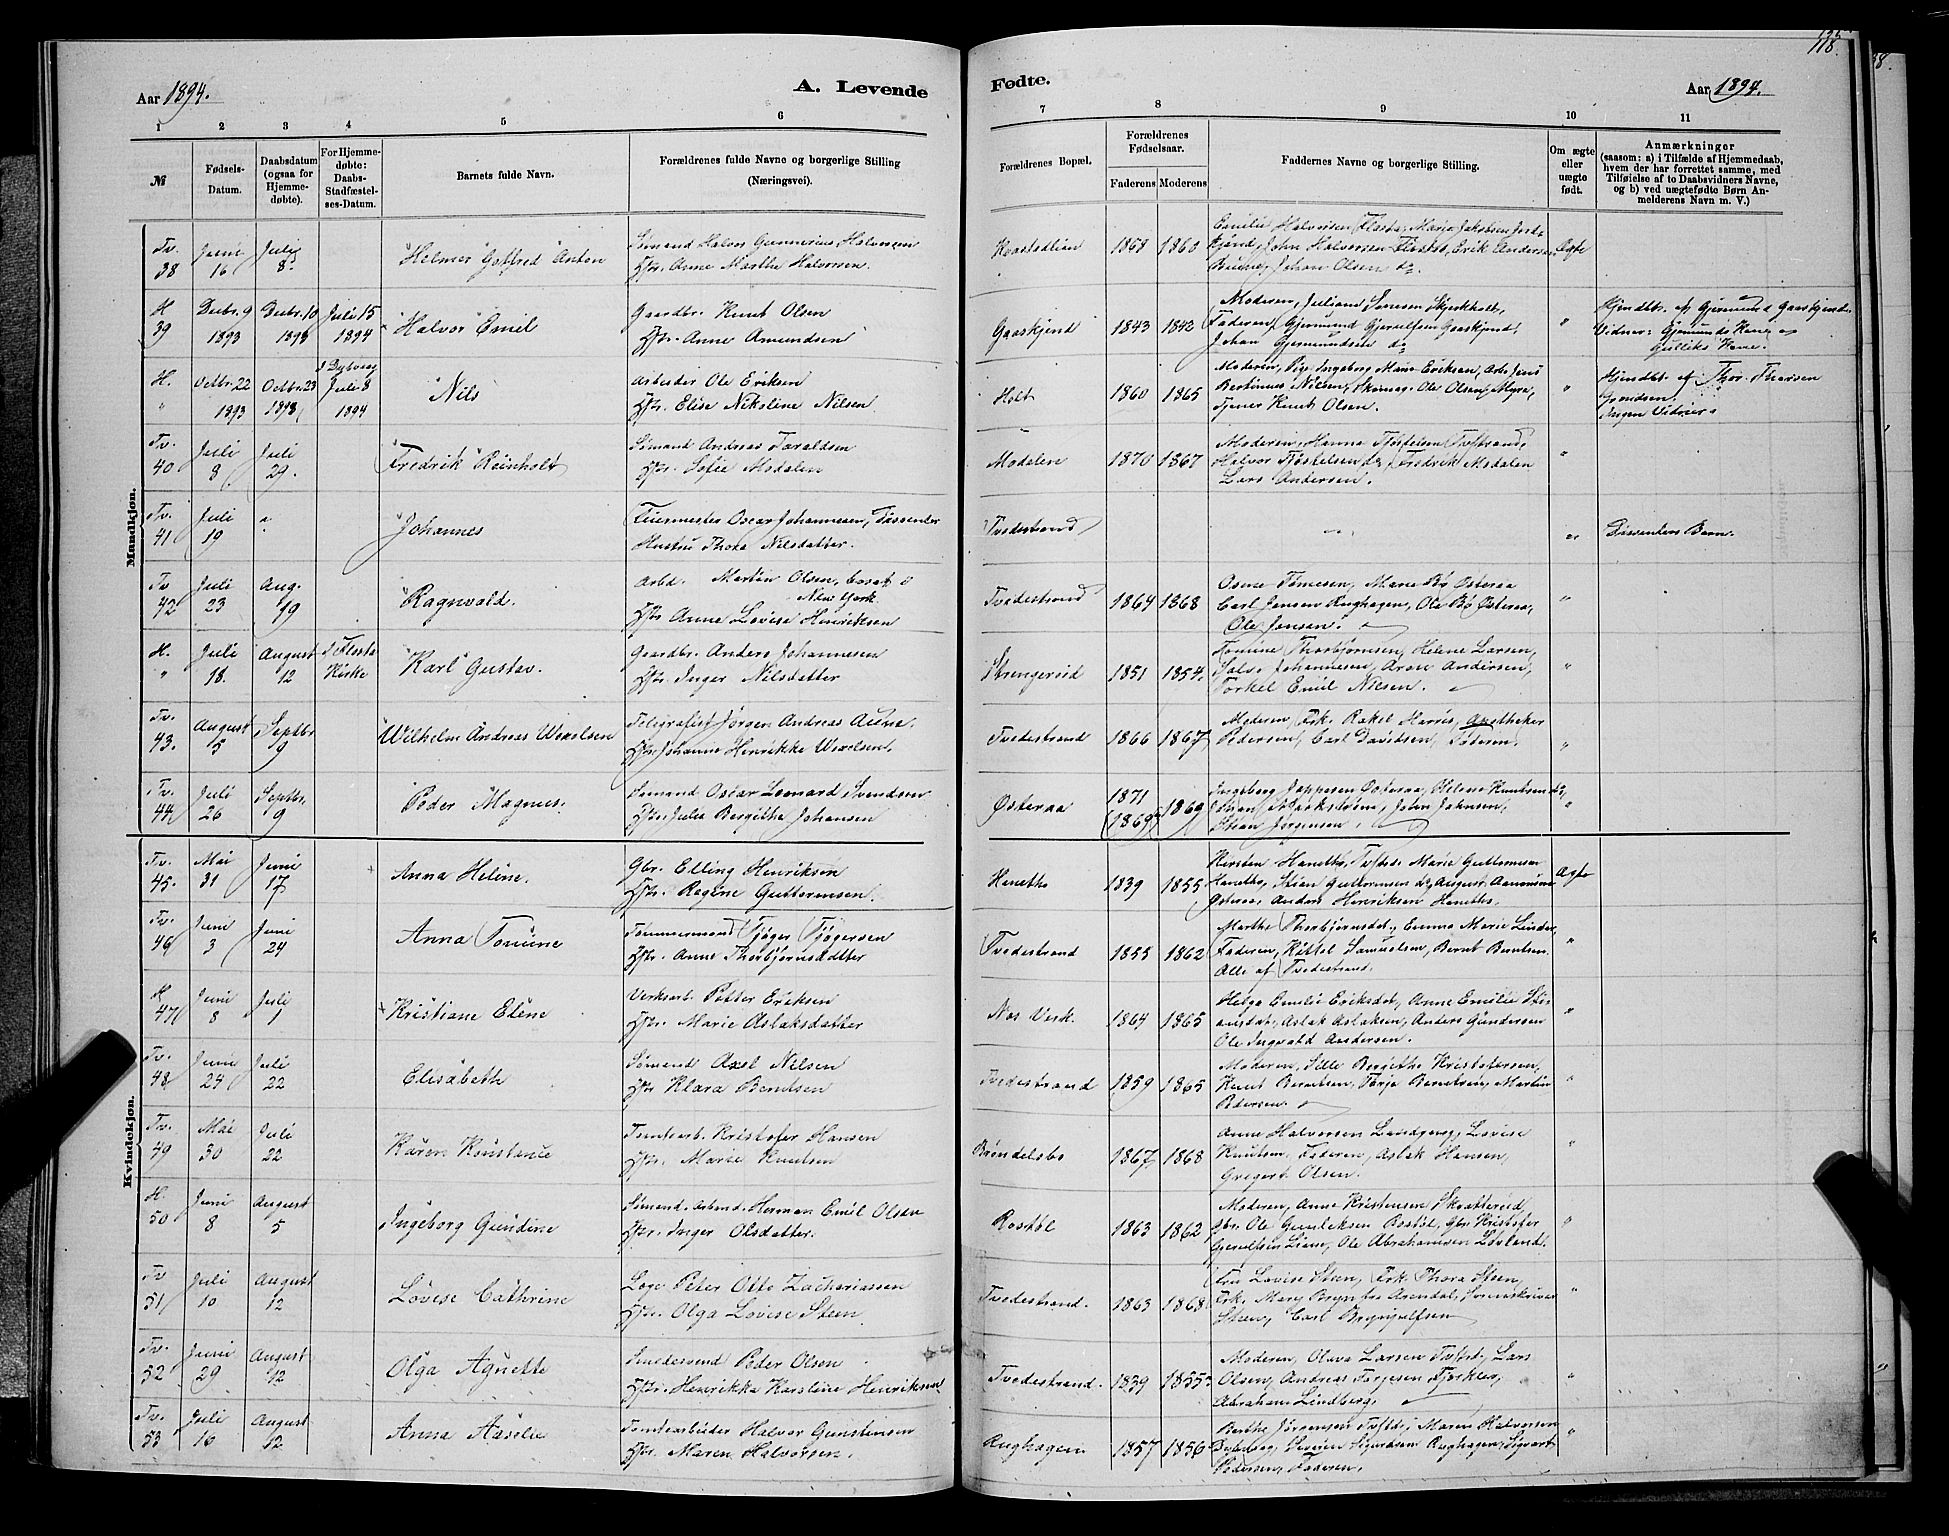 118.
Aar 1894.
A. Levende
Fødte.
Aar 1894.
1 2 3 4 5 6 7 8 9 10 11
№
Fødsels-
Datum.
Daabsdatum
(ogsaa for
Hjemme-
døbte).
For Hjemme-
døbte:
Daabs-
Stadfæstel-
ses-Datum.
Barnets fulde Navn.
Forældrenes fulde Navne og borgerlige Stilling
(Næringsvei).
Forældrenes Bopæl.
Forældrenes
Fødselsaar.
Faderens Moderens
Faddernes Navne og borgerlige Stilling.
Om ægte
eller
uægte
født.
Anmærkninger
(saasom: a) i Tilfælde af Hjemmedaab,
hvem der har forrettet samme, med
Tilføielse af to Daabsvidners Navne,
og b) ved uægtefødte Børn An-
melderens Navn m. V.)
Mandkjøn.
Tv. 38 Juni 16 Juli 8. Helmer Gotfred Anton
Sømand Halvor Gunnerius Halvorsen
Hstr. Anne Marthe Halvorsen.
Kvastadlien 1868 1860
Emilie Halvorsen Flosta, Marie Jakobsen
John Halvorsen Flosta, Erik Andersen
Johan Olsen do
Ægte
H 39 Decbr. 9 1893 Decbr. 10 1893 Juli 15 1894 Halvor Emil
Gaardbr. Knut Olsen
Hstr. Anne Amundsen
Gaaskjend 1843 1842
Moderen, Juliane Sørensen Skjerkholt,
Faderen, Gjermund Gjerulfsen Gaaskjend,
Johan Gjermundsen do
"
Hjmdbt. af Gjermund Gaaskjend.
Vidner: Gjermunds Kone og
Gulliks Kone.
H. " Octbr. 22 1893 Octbr. 23 1893 i Dybvaag Juli 8 1894 Nils
Arbeider Ole Eriksen
Hstr. Elise Nikoline Nilsen
Holt 1860 1865
Moderen, Pige Ingeborg Marie Eriksen, Arb. Jens
Bertinus Nilsen, Ole Olsen Myre,
Tjener Knut Olsen.
"
Hjmdbt. af Thor Thorsen
Ingen Vidner
Tv. 40 Juli 8 Juli 29. Fredrik Reinholt
Sømand Andreas Taraldsen
Hstr. Sofie Modalen
Modalen 1870 1867
Moderen, Hanna Tostelsen Tvdstrand,
Halvor Tostelsen do, Fredrik Modalen
Lars Andersen.
"
Tv. 41 Juli 19 " Johannes
Feiermester Oscar Johannesen, Dissenter
Hustru Thora Nilsdatter.
Tvedestrand
"
Dissenters Barn.
Tv 42 Juli 23 Aug. 19 Ragnvald.
Arbd. Martin Olsen, bosat i
New York
Hstr Anne Lovise Henriksen
Tvedestrand 1864 1868
Osene Tomesen, Marie Bø Østeraa
Carl Jensen Rughagen, Ole Bø Østeraa,
Ole Jensen.
"
H. " Juli 18. August 12 i Flosta Kirke Karl Gustav.
Gaardbr. Anders Johannesen
Hstr. Inger Nilsdatter
Strengereid 1851 1854.
Tomine Thorbjørnsen, Helene Larsen,
Salve Johannesen, Aron Andersen,
Torkel Emil Nilsen.
"
Tv. 43. August 5 Septbr. 9 Wilhelm Andreas Wexelsen
Telegrafist Jørgen Andreas Aune.
Hstr. Johanne Henrikke Wexelsen.
Tvedestrand 1866 1867
Moderen, Frk. Rakel Harris, Apotheker
Pedersen, Carl Davidsen, Faderen.
"
Tv. 44 Juli 26 Septbr. 9 Peder Magnus.
Sømand Oscar Leonard Svendsen
Hstr. Julie Bergithe Johansen
Østeraa 1871 (1869) 1869
Ingeborg Jappesen Østeraa, Helene Knutsen do,
John Johnsen,
Stian Jørgensen.
"
Kvindekjøn.
Tv. 45. Mai 31 Juni 17 Anna Heline.
Gbr. Elling Henriksen
Hstr. Regine Guttormsen.
Hanetho 1839 1855.
Kirsten Hanetho, Tvdstd. Marie Guttormsen
Hanetho, Stian Guttormsen do, August
Østeraa, Anders Henriksen Hanetho.
Ægte
Tv. 46 Juni 3 Juni 24 Anna Tomine
Tømmermand Tjøger Tjøgersen
Hstr. Anne Thorbjørnsdatter
Tvedestrand 1855 1862
Marthe Thorbjørnsdt., Emma Marie Linder,
Faderen, Kittel Samuelsen, Bernt Berntsen.
Alle af Tvedestrand.
"
H 47 Juni 8 Juli 1 Kristiane Eline
Verksarb. Petter Eriksen
Hstr. Marie Aslaksdatter
Næs Verk. 1864 1865
Helga Emelie Eriksdat., Anne Emilie Sti-
ansdat., Aslak Aslaksen, Anders Gundersen
Ole Ingvald Andersen.
"
Tv. 48 Juni 24 Juli 22 Elisabeth
Sømand Axel Nilsen
Hstr Klara Berntsen
Tvedestrand 1859 1865
Moderen, Sille Bergithe Kristofersen,
Knut Berntsen, Terje Berntsen, Martin
Pedersen.
"
Tv. 49 Mai 30 Juli 22 Karen Konstance
Tomtearb. Kristofer Hansen
Hstr. Marie Knutsen
Brøndelsbo 1867 1868
Anne Halvorsen Lovise
Knutsen, Faderen, Aslak Hansen,
Gregert Olsen.
"
H. 50 Juni 8 August 5 Ingeborg Gundine
Sømand Arbeid. Herman Emil Olsen
Hstr. Inger Olsdatter.
Rostøl 1863 1862
Moderen, Anne Kristensen Skratterud,
Gbr. Ole Gunleksen Rostøl, Gbr Kristofer
Gjerulfsen Liene, Ole Abrahamsen Lovland.
"
Tv 51 Juli 10 August 12 Lovise Cathrine
Lods Peter Otto Zachariassen
Hstr. Olga Lovise Steen
Tvedestrand. 1863 1868
Fru Lovise Steen, Frk. Thora Steen,
Frk. Mary Arendal, Sorenskriver
Steen, Carl Brynjulfsen
"
Tv. 52 Juni 29 August 12 Olga Agnette
Smedesvend Peder Olsen
Hstr. Henrikke Karsline Henriksen
Tvedestrand. 1839 1855
Moderen, Olava Larsen Tvdst., Lars
Olsen, Andreas Terjesen
Abraham Lindberg.
"
Tv. 53 Juli 16 August 12 Anna Aaselie
Tomtearbeider Halvor Gunstensen
Hstr. Maren Halvorsen.
Rughagen 1857 1856
Berthe Jørgensen Tvdtd., Maren Halvorsen
Sigurdsen Rughagen, Sigvart
Pedersen, Faderen.
"